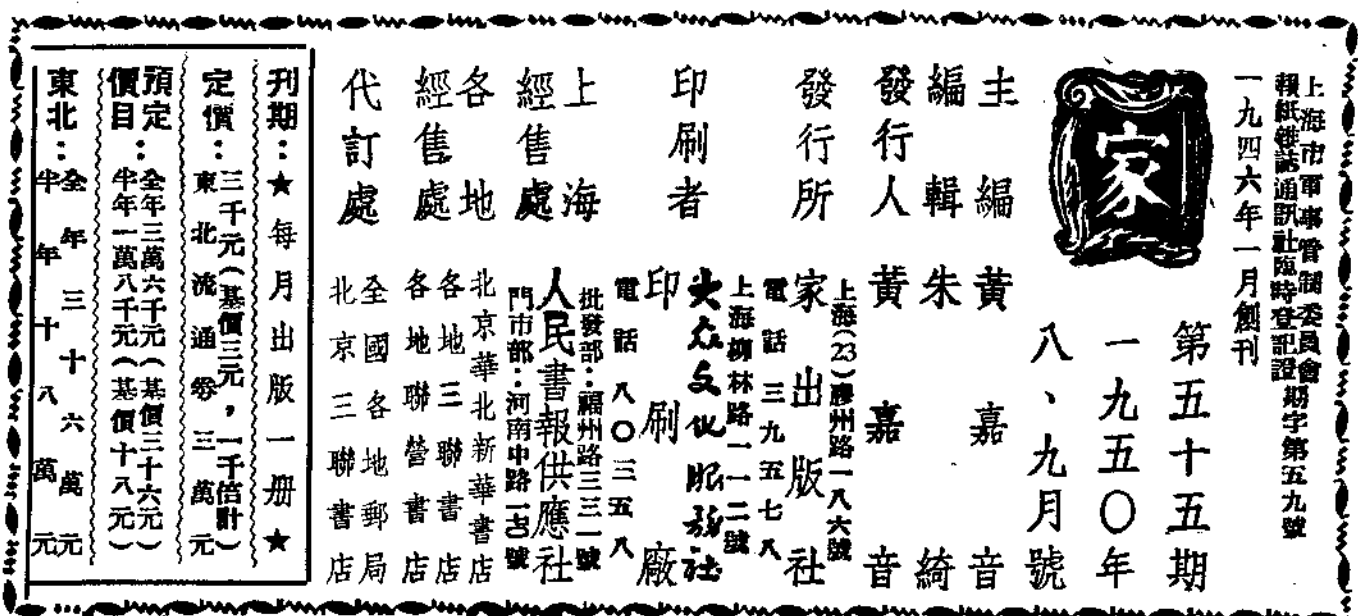 上海市軍事管制委員會
報紙雜誌通訊社臨時登記證期字第五九號
一九四六年一月創刊
家
第五十五期
一九五〇年
八、九月號
主編 黃嘉音
編輯 朱綺
發行人 黃嘉音
發行所 家出版社
上海(23)膠州路一八六號
電話 三九五七八
印刷者 大众文化服務社印刷廠
上海柳林路一一二號
電話 八〇三五八
上海經售處 人民書報供應社
批發部：福州路三三一號
門市部：河南中路一七〇號
各地經售處 北京華北新華書店
各地三聯書店
各地聯營書店
代訂處 全國各地郵局
北京三聯書店
刊期：★每月出版一册★
定價：三千元(基價三元，一千倍計)
東北流通劵三萬元
預定價目：全年三萬六千元(基價三十六元)
半年一萬八千元(基價十八元)
東北：全年三十六萬元
半年十八萬元